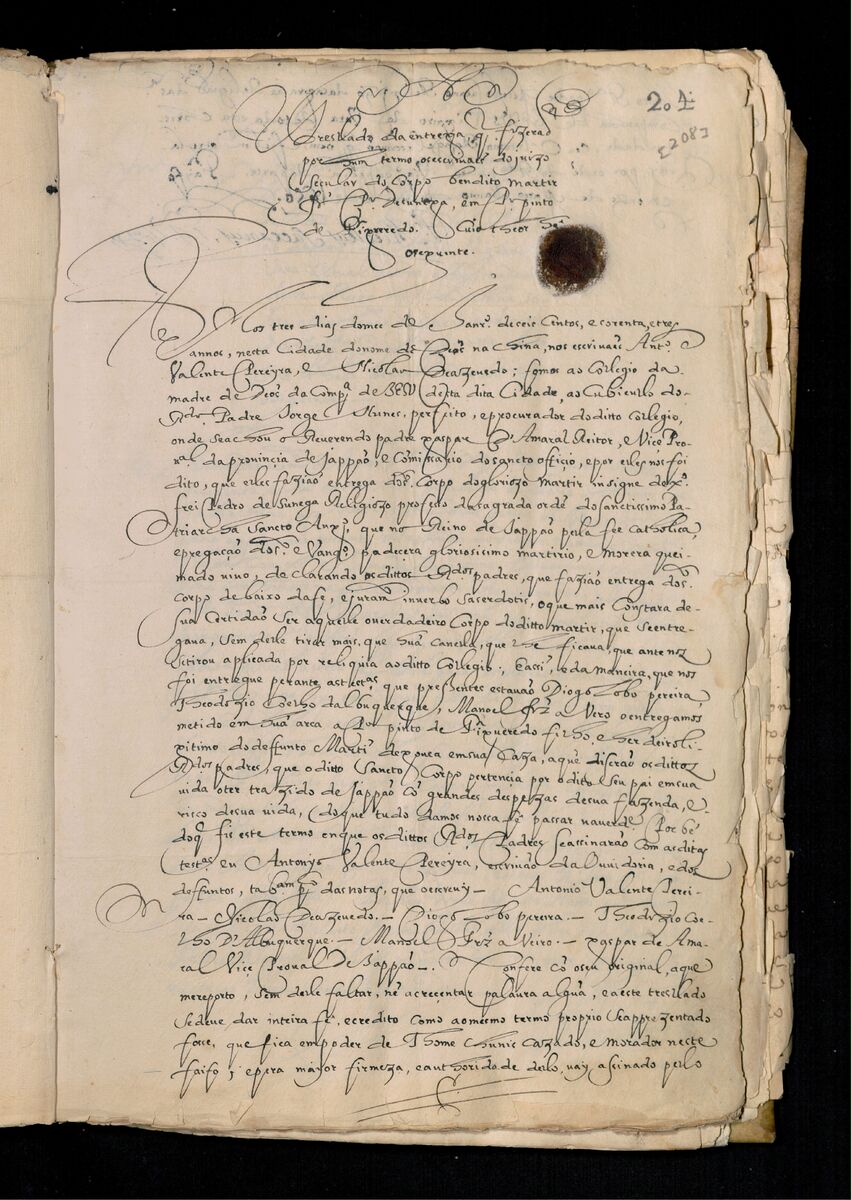 204
[208]
Treslado da entrega, q̃ fizeraõ
por hum termo, os escrivaẽs do juizo
secular do Corpo bendito Martir
frej Pº de suñega, em Pº pinto
de Figueredo. Cuio theor he
o seguinte.
Aos tres dias do mes de Janrº. de seis Centos, e corenta, e tres
annos, nesta Cidade do nome de Deos na China, nos escrivaẽs Antº.
Valente Pereyra, e Nicolao de Azevedo; fomos ao Collegio da
madre de Deos da Compª de JESU desta dita Cidade, ao Cubiculo do
Rdo. Padre Jorge Nunes, perfeito, e procurador do ditto Collegio,
onde se achou o Reverendo padre gaspar D'Amaral Reitor, e Vice Pro-
al da provinçia de Jappaõ, e Comissario do sancto officio, e por elles nos foi
dito, que elles faziaõ entrega do Corpo do gloriozo martir insigne de xº.
frei Pedro de sunega Religiozo professo da sagrada ordẽ do sanctissimo Pa-
triarcha Sancto Augº, que no Reino de Jappaõ pella fee Catholica,
e pregaçaõ do Sº. e Vangº. padecera gloriosissimo martirio, e morera quei-
mado vivo, declarando os dittos Rdos padres, que faziaõ entrega do Sº.
corpo de baixo da fe, e juramº in verbo sacerdotis, o que mais Constara de
sua Certidaõ ser aquelle o verdadeiro Corpo do ditto martir, que se entre-
gava, sem delle tirar mais, que huã canella, que lhe ficava, que ante nos
se tirou aplicada por reliquia ao ditto Collegio; E assi, e da maneira, que nos
foi entregue perante as testªs, que prezentes estavaõ Diogo lobo pereira,
Theodozio Coelho dalbuquerque, Manoel frz a Vero o entregamos
metido em huã arca a Pº pinto de Figueredo filho e herdeiro li-
gitimo do deffunto Marti em sua Caza, a que disseraõ os dittos
Rdos padres, que o ditto Sancto Corpo pertencia por o dito seu pai em sua
vida o ter trazido de Jappaõ cõ grandes despezas de sua fazenda, e
risco de sua vida, do que tudo damos nossa fe passar na verdᵉ. Por bẽ
do q̃ fis este termo en que os dittos Rdos Padres se assinaraõ Com as ditas
testªs. eu Antonyo Valente Pereyra, escrivaõ da Ouvidoria, e dos
deffuntos, tabam das notas, que o escrevy — Antonio Valente Perei-
ra — Nicolao de Azevedo. — Diogo lobo pereira. — Theodozio Coe-
lho D'Albuquerque. — Manoel Frz a Veiro. — gaspar de Ama-
ral Viçe Proval De Jappaõ —. Confere cõ o seu original, a que
me reporto, sem delle faltar, nẽ acrecentar palavra algũa, e a este treslado
se deve dar inteira fé, e credito como ao mesmo termo proprio se apprezentado
fosse, que fica em poder de Thome Chunis Cazado, e morador neste
faifo; e pera mayor firmeza, e authoridade delo, vay assinado pello